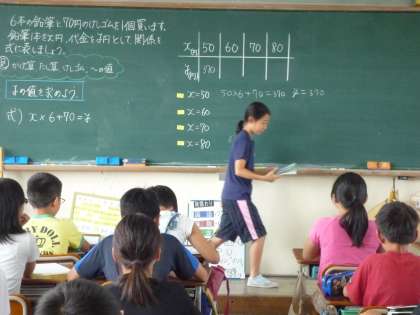 6本の鉛筆と70円のけしゴムを1個買います。
鉛筆1本をx円、代金をy円として関係を
式に表しましょう。
かけ算 たし算 けしゴム
yの値を求めよう。
式) x×6+70=y
x 50 60 70 80
y 370
x=50 50×6+70=370 y=370
x=60
x=70
x=80
DOLL